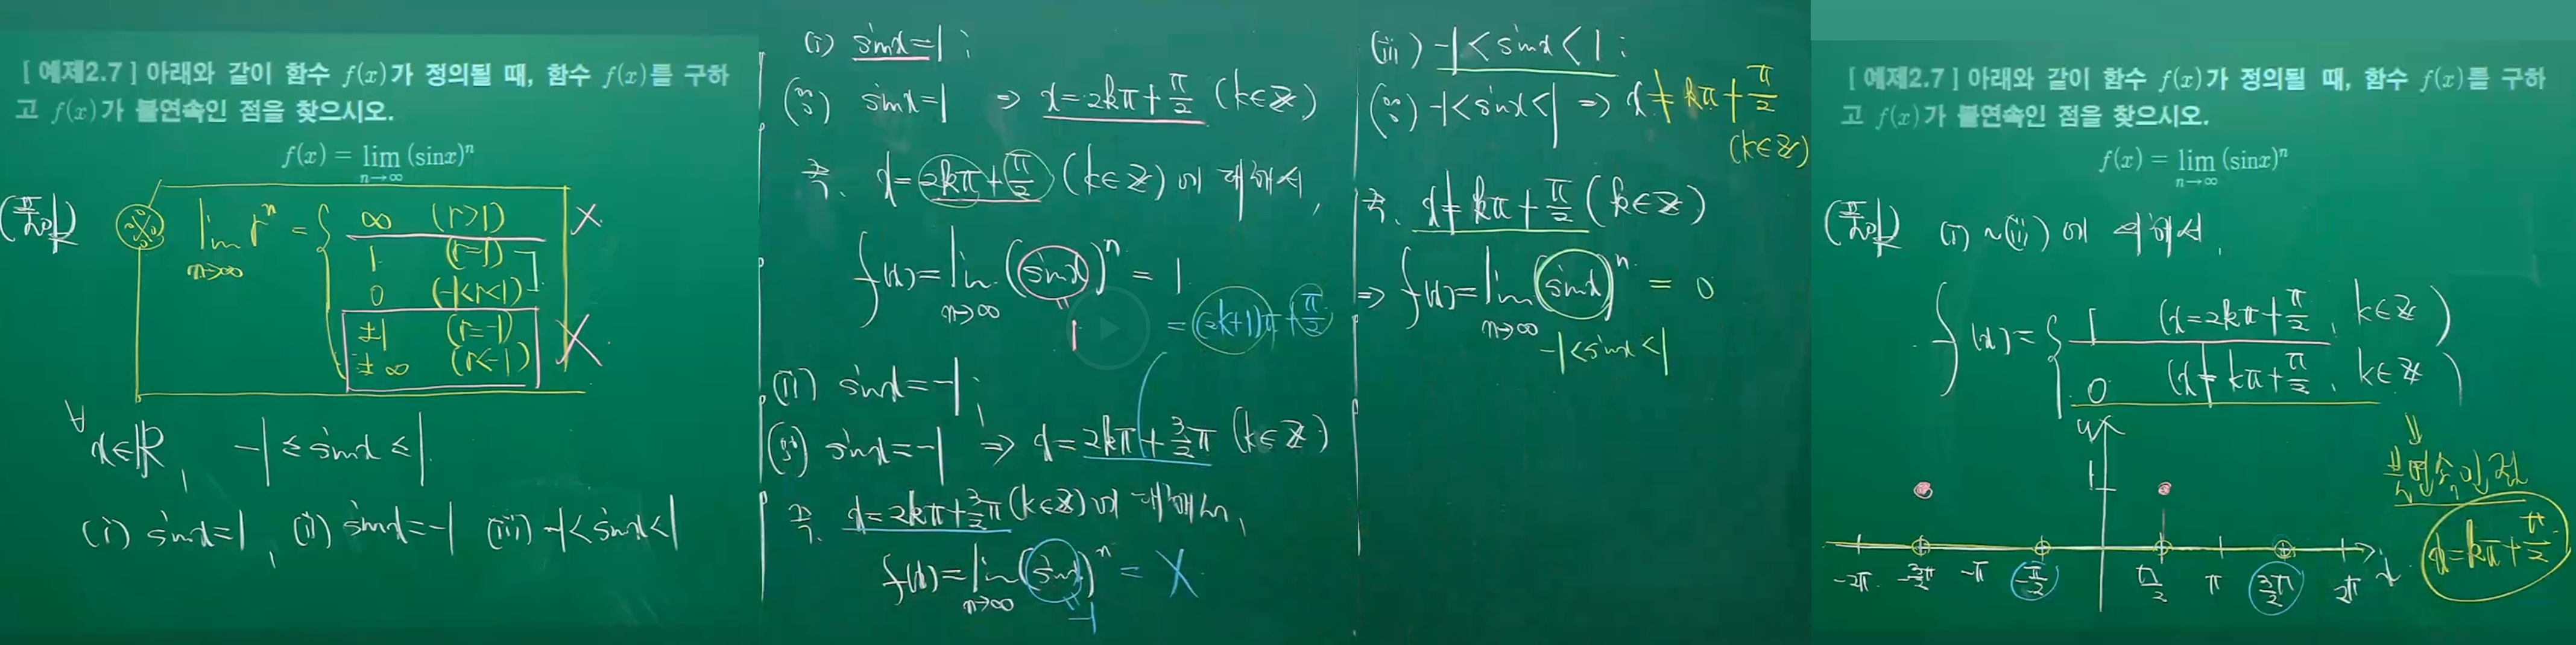 [ 예제2.7 ] 아래와 같이 함수 f(x)가 정의될 때, 함수 f(x)를 구하
고 f(x)가 불연속인 점을 찾으시오.
f(x) = lim (sinx)ⁿ
n→∞
(풀이)
lim rⁿ = { ∞ (r>1) X
n→∞
1 (r=1)
0 (-1<r<1)
±1 (r=-1) X
±∞ (r<-1)
∀x∈ℝ, -1 ≤ sinx ≤ 1
(i) sinx=1, (ii) sinx=-1 (iii) -1<sinx<1
(i) sinx=1 ;
(∵) sinx=1 ⇒ x=2kπ+π/2 (k∈ℤ)
즉, x=2kπ+π/2 (k∈ℤ)에 대해서,
f(x)=lim (sinx)ⁿ = 1
n→∞
1
=(2k+1)π+π/2
(ii) sinx=-1 ;
(∵) sinx=-1 ⇒ x=2kπ+3/2π (k∈ℤ)
즉, x=2kπ+3/2π (k∈ℤ)에 대해서,
f(x)=lim (sinx)ⁿ = X
n→∞
-1
(iii) -1<sinx<1 ;
(∵) -1<sinx<1 ⇒ x≠kπ+π/2
(k∈ℤ)
즉, x≠kπ+π/2 (k∈ℤ)
⇒ f(x)=lim (sinx)ⁿ = 0
n→∞
-1<sinx<1
[ 예제2.7 ] 아래와 같이 함수 f(x)가 정의될 때, 함수 f(x)를 구하
고 f(x)가 불연속인 점을 찾으시오.
f(x) = lim (sinx)ⁿ
n→∞
(풀이) (i)~(iii)에 의해서,
f(x)= { 1 (x=2kπ+π/2, k∈ℤ)
0 (x≠kπ+π/2, k∈ℤ)
⇓
불연속인 점
x=kπ+π/2
y
1
-2π -3/2π -π -π/2 π/2 π 3/2π 2π x